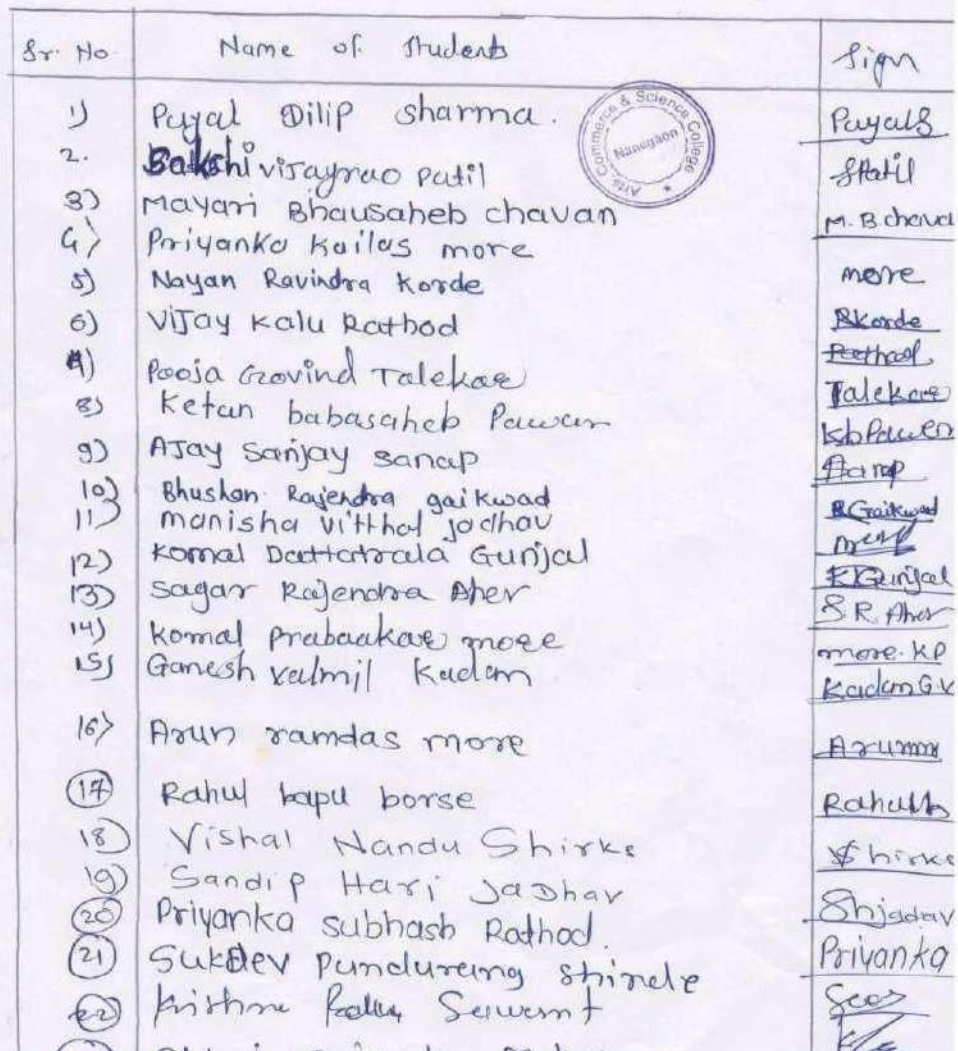 Sr. No. Name of Students Sign
1) Payal Dilip Sharma. PayalS
2. Sakshi vijayrao patil SPatil
3) Mayari Bhausaheb chavan M.B chava
4) Priyanka Kailas more more
5) Nayan Ravindra Korde RKorde
6) Vijay Kalu Rathod Rathod
7) Pooja Govind Talekar Talekar
8) Ketan babasaheb Pawar kbPawer
9) Ajay Sanjay Sanap
10) Bhushan Rajendra gaikwad BGaikwad
11) manisha vitthal jadhav
12) Komal Dattatrala Gunjal KGunjal
13) Sagar Rajendra Aher S.R. Aher
14) Komal Prabaakar more more.KP
15) Ganesh valmil Kadam Kadam G.V
16) Arun ramdas more
17 Rahul bapu borse Rahulb
18) Vishal Nandu Shirke Shirke
19) Sandip Hari Jadhav Shjadav
20 Priyanka subhash Rathod. Priyanka
21 Sukdev Pundurang Shinde
22 Krishna
Arts, Commerce & Science College
Nandgaon